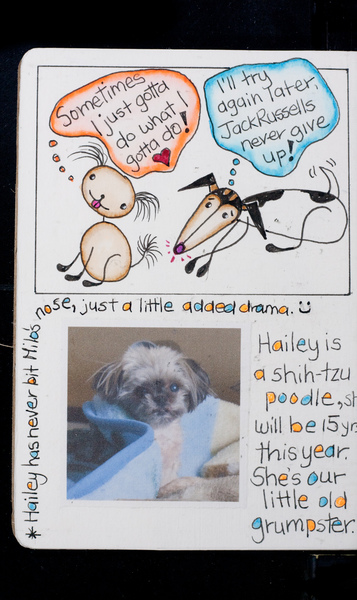 Sometimes
I just gotta
do what I
gotta do!
I'll try
again later,
Jack Russells
never give
up!
*Hailey has never bit Milo's nose, just a little added drama.
Hailey is
a shih-tzu
poodle, sh
will be 15 yr
this year.
She's our
little old
grumpster.